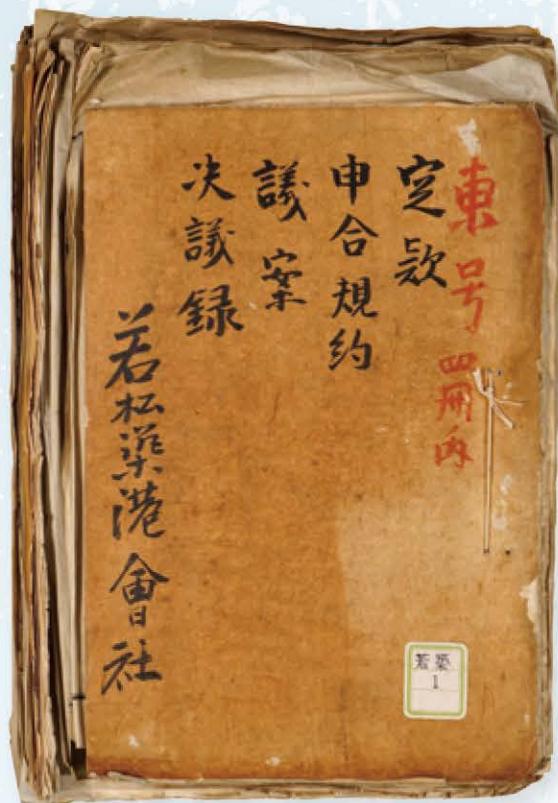 東号四冊内
定款
申合規約
議案
决議録
若松築港會社
若築
1